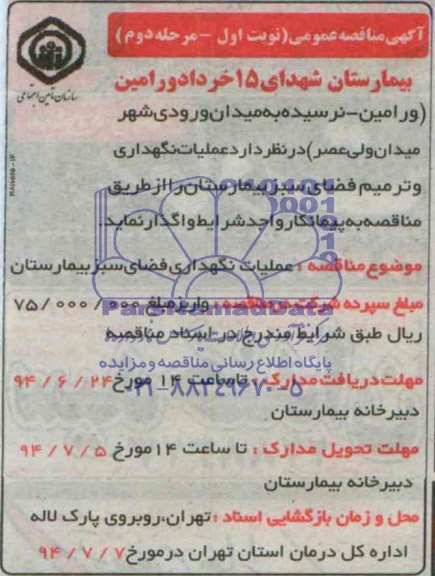 آگهی مناقصه عمومی (نوبت اول - مرحله دوم)
سازمان تأمین اجتماعی
بیمارستان شهدای ۱۵ خرداد ورامین
(ورامین-نرسیده به میدان ورودی شهر
میدان ولی عصر) در نظر دارد عملیات نگهداری
و ترمیم فضای سبز بیمارستان را از طریق
مناقصه به پیمانکار واجد شرایط واگذار نماید.
موضوع مناقصه : عملیات نگهداری فضای سبز بیمارستان
مبلغ سپرده شرکت در مناقصه : واریز مبلغ ۷۵/۰۰۰/۰۰۰
ریال طبق شرایط مندرج در اسناد مناقصه
ParsNamadData
پایگاه اطلاع رسانی مناقصه و مزایده
مهلت دریافت مدارک : تا ساعت ۱۴ مورخ ۹۴/۶/۲۴
۰۲۱-۸۸۳۴۹۶۷۰-۵
دبیرخانه بیمارستان
مهلت تحویل مدارک : تا ساعت ۱۴ مورخ ۹۴/۷/۵
دبیرخانه بیمارستان
محل و زمان بازگشایی اسناد : تهران، روبروی پارک لاله
اداره کل درمان استان تهران در مورخ ۹۴/۷/۷